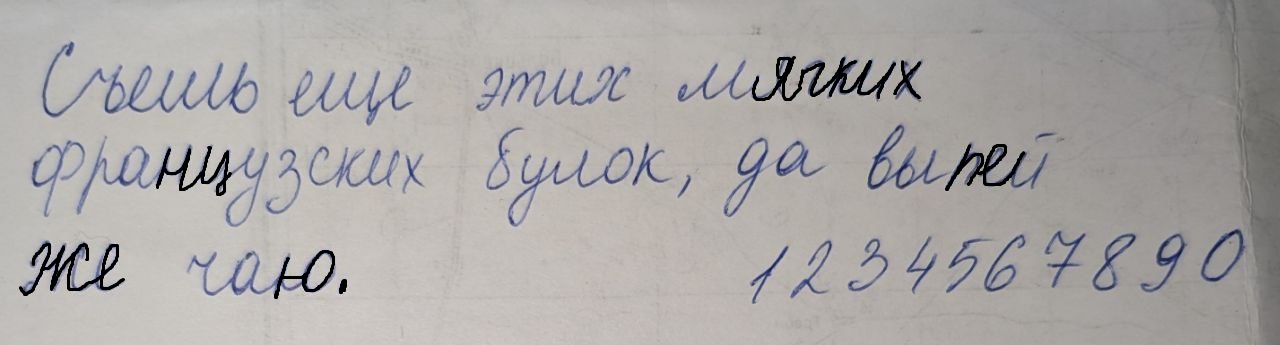 Съешь еще этих мягких
французских булок, да выпей
же чаю. 1234567890